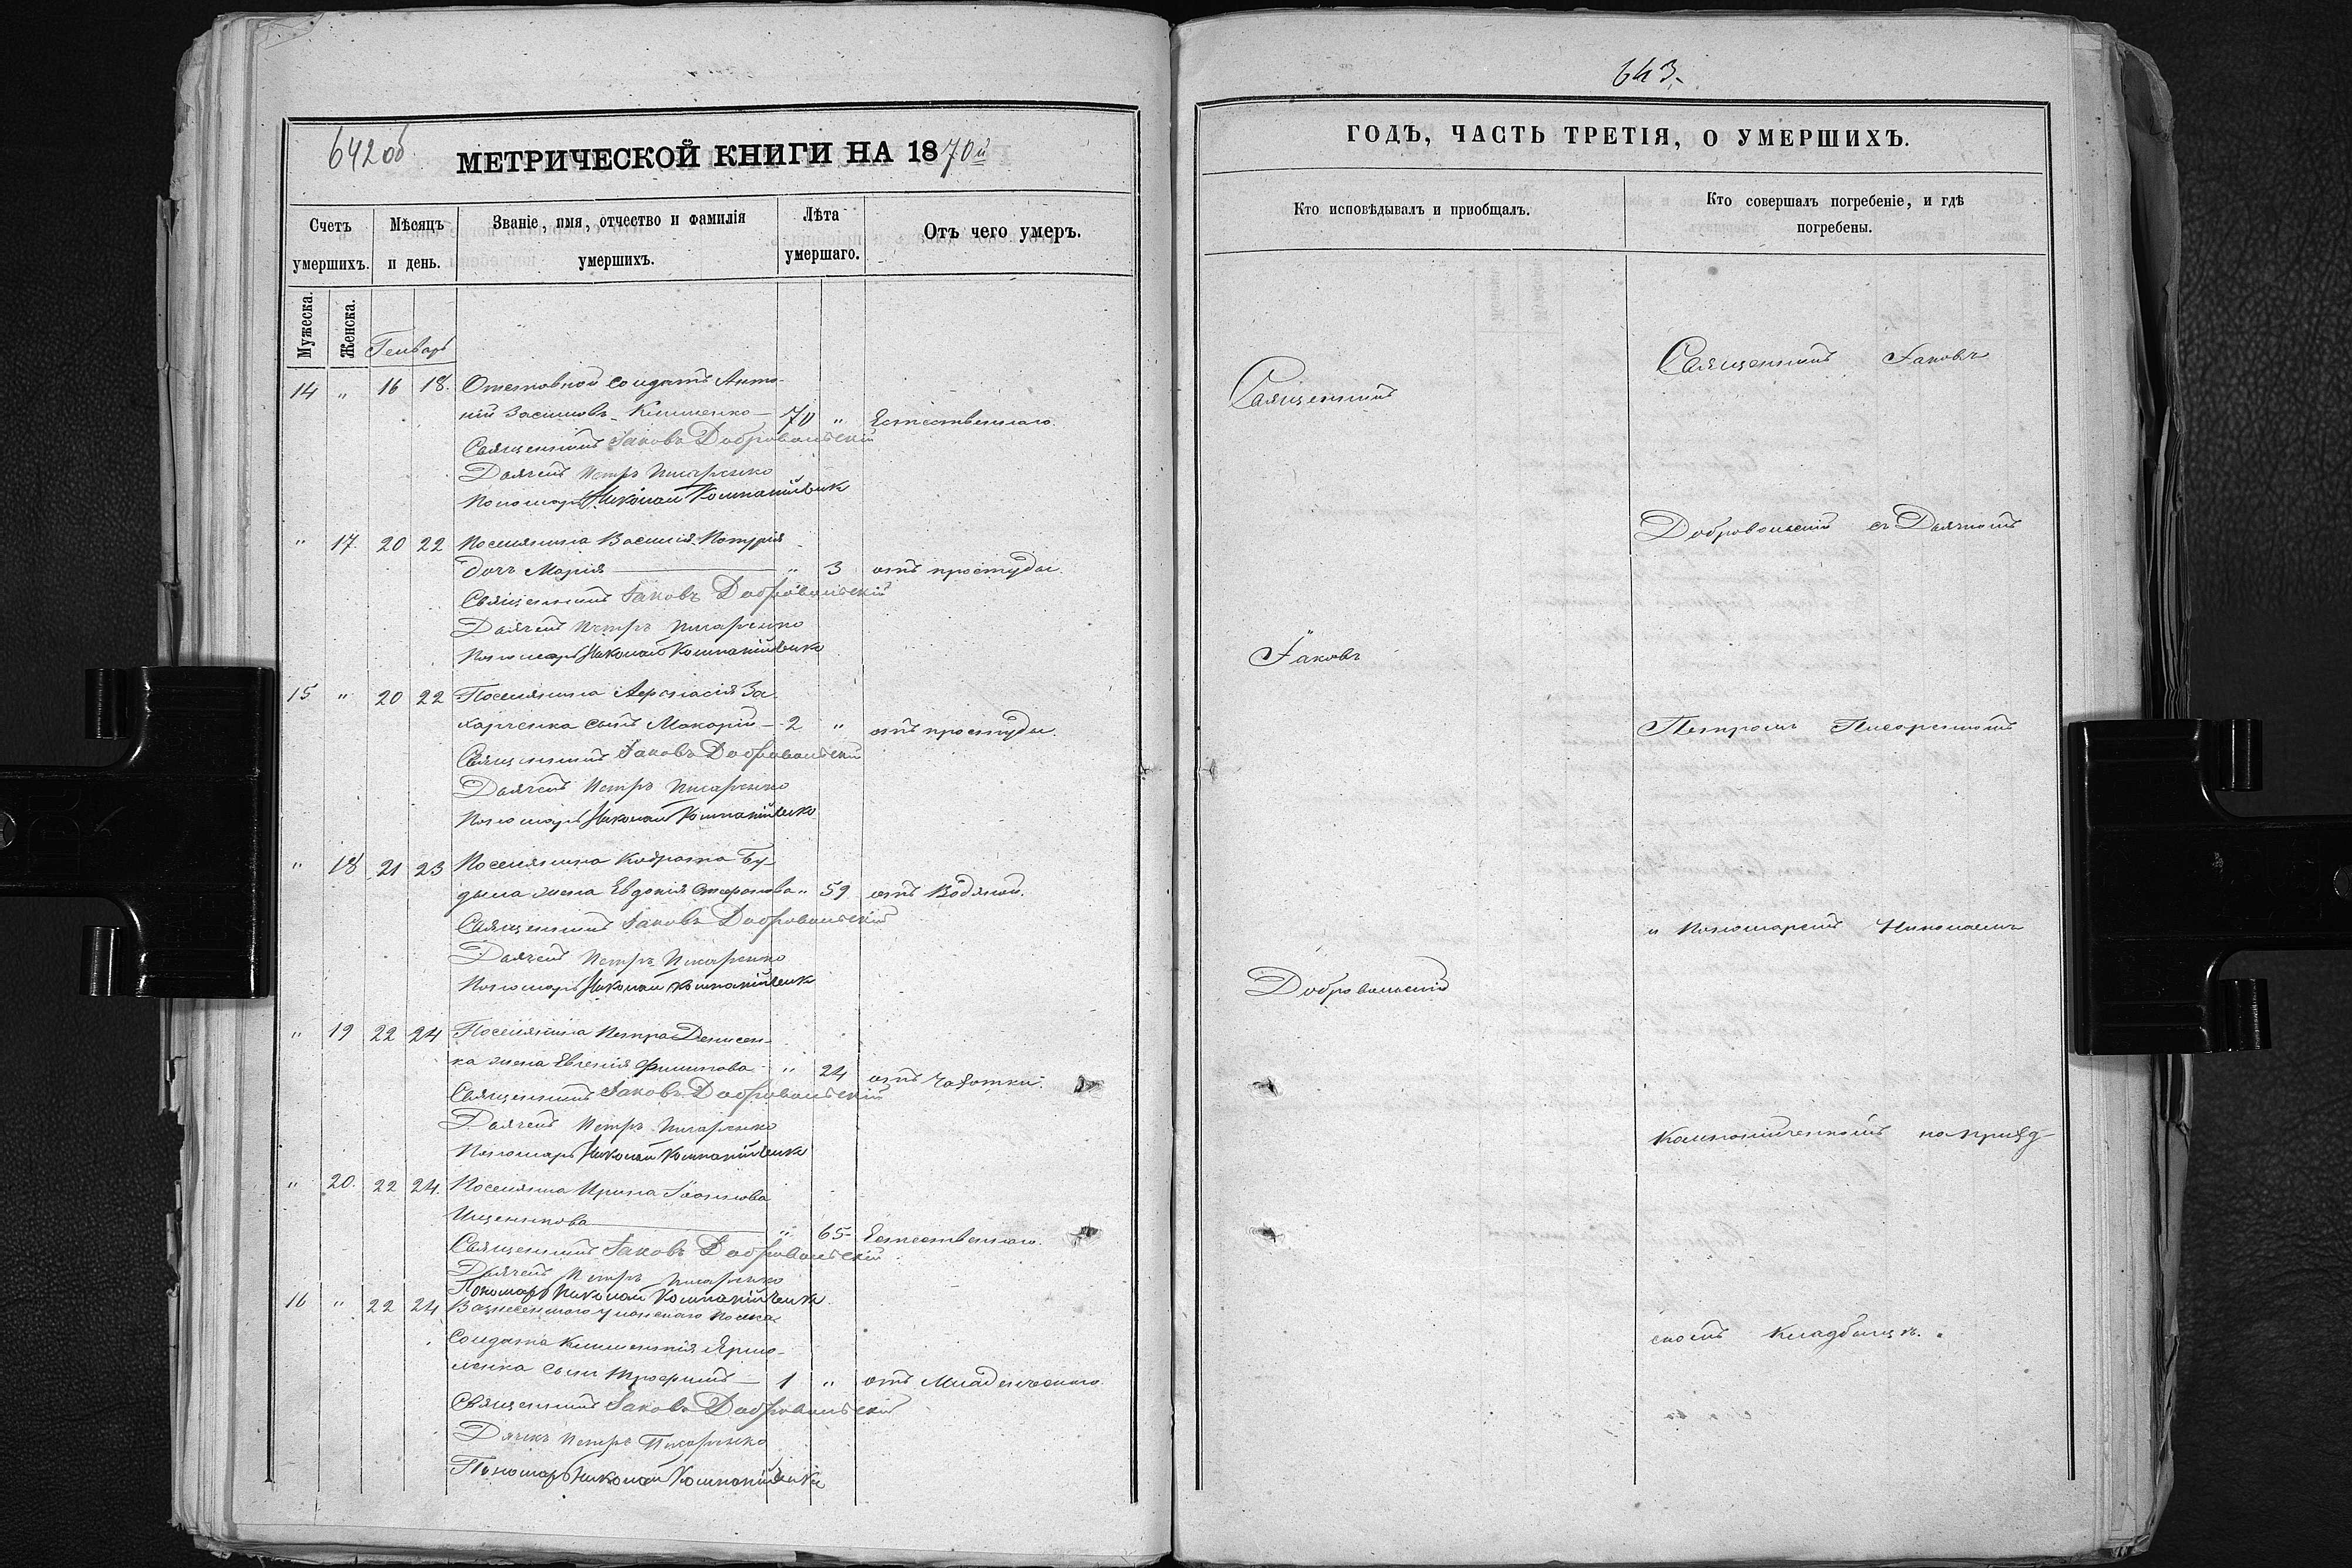 642 об
МЕТРИЧЕСКОЙ КНИГИ НА 1870й
Счетъ умершихъ.
Мѣсяцъ и день.
Званіе, имя, отчество и фамилія умершихъ.
Лѣта умершаго.
Отъ чего умеръ.
Мужеска.
Женска.
Генварь
14 " 16 18. Отставной солдатъ Анто-
ній Засимовъ Клименко — 70 " Естественною.
Священникъ Іаковъ Добровольскій
Дьячекъ Петръ Писаренко
Пономарь Николай Компанійченко
" 17. 20 22 Поселянина Василія
дочь Марія — " 3 отъ простуды.
Священникъ Іаковъ Добровольскій
Дьячекъ Петръ Писаренко
Пономарь Николай Компанійченко
15 " 20 22 Поселянина Афанасія За-
харченка сынъ Макарій — 2 " отъ простуды.
Священникъ Іаковъ Добровольскій
Дьячекъ Петръ Писаренко
Пономарь Николай Компанійченко
" 18 21 23 Поселянина Кодрата Бу-
дыла жена Евдокія Стефанова " 59 отъ водяной.
Священникъ Іаковъ Добровольскій
Дьячекъ Петръ Писаренко
Пономарь Николай Компанійченко
" 19 22 24 Поселянина Петра Денисен-
ка жена Евгенія Филипова " 24 отъ чахотки.
Священникъ Іаковъ Добровольскій
Дьячекъ Петръ Писаренко
Пономарь Николай Компанійченко
" 20. 22 24. Поселянка Ирина
Ищенкова — " 65 Естественною.
Священникъ Іаковъ Добровольскій
Дьячекъ Петръ Писаренко
Пономарь Николай Компанійченко
16 " 22 24 Вознесенского уланскаго полка
Солдата Климентія Ярмо-
ленка сынъ Трофимъ — 1 " отъ младенческаго.
Священникъ Іаковъ Добровольскій
Дячекъ Петръ Писаренко
Пономарь Николай Компанійченко
643.
ГОДЪ, ЧАСТЬ ТРЕТІЯ, О УМЕРШИХЪ.
Кто исповѣдывалъ и приобщалъ.
Кто совершалъ погребеніе, и гдѣ погребены.
Священникъ
Іаковъ
Добровольскій
Священникъ Іаковъ
Добровольскій съ Дьячкомъ
Петромъ Писаренкомъ
и Пономаремъ Николаемъ
Компанійченкомъ на приход-
скомъ кладбищѣ.